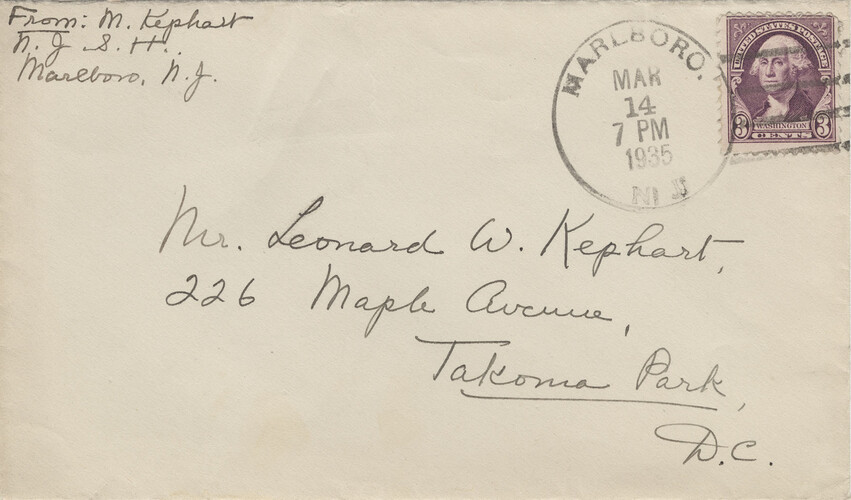 From: M. Kephart
N. J. S. H.
Marlboro, N. J.
MARLBORO.
MAR
14
7 PM
1935
N J
UNITED STATES POSTAGE
3 WASHINGTON 3
CENTS
Mr. Leonard W. Kephart,
226 Maple Avenue,
Takoma Park,
D.C.